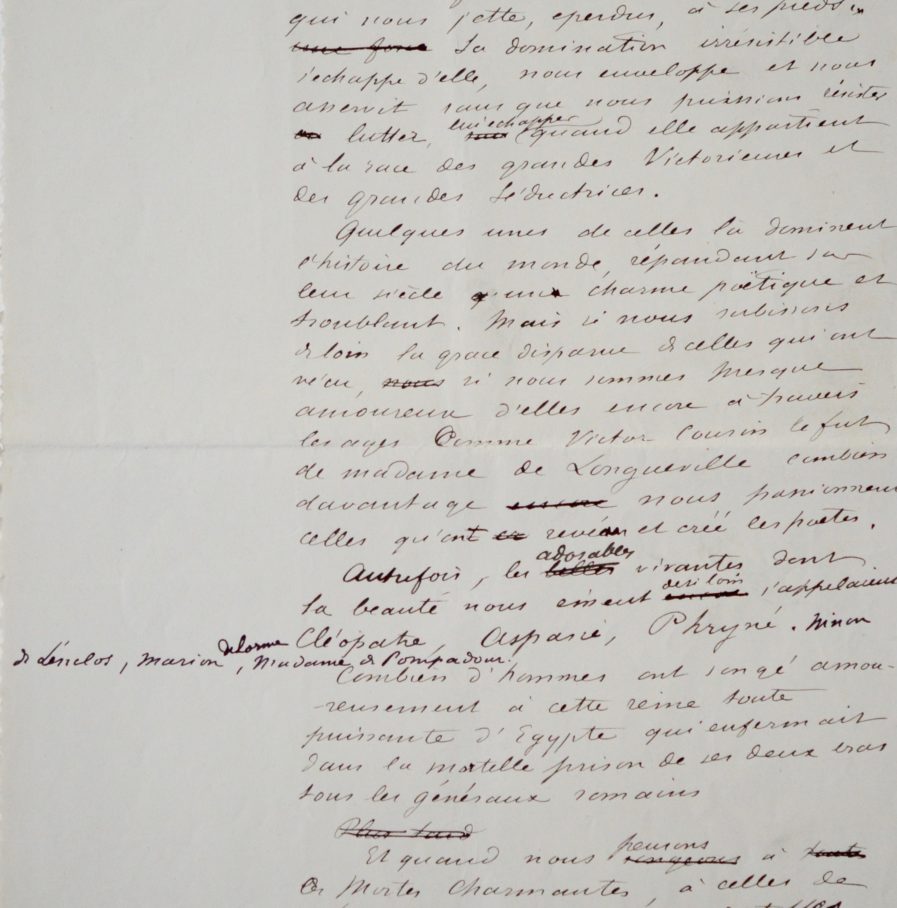 qui nous jette, eperdus, à ses pieds.
une force Sa domination irrésistible
s'echappe d'elle, nous enveloppe et nous
asservit sans que nous puissions résister
ou lutter, lui échapper quand elle appartient
à la race des grandes Victorieuses et
des grandes Séductrices.
Quelques unes de celles là dominent
l'histoire du monde, répandant sur
leur siècle un charme poëtique et
troublant. Mais si nous subissons
de loin la grace disparue de celles qui ont
vécu, nous si nous sommes presque
amoureux d'elles encore à travers
les ages Comme Victor Cousin le fut
de madame de Longueville combien
davantage encore nous passionnent
celles qu'ont revées et créé les poëtes.
adorables
Autrefois, les belles vivantes dont
de si loin
la beauté nous émeut encore s'appelaient
Cléopatre, Aspasie, Phryné. Ninon
de Lénclos, Marion delorme, Madame de Pompadour.
Combien d'hommes ont songé amou-
-reusement à cette reine toute
puissante d'Egypte qui enfermait
dans la mortelle prison de ses deux bras
tous les généraux romains
Plus tard
pensons
Et quand nous songeons à toute
Ces Mortes Charmantes, à celles de